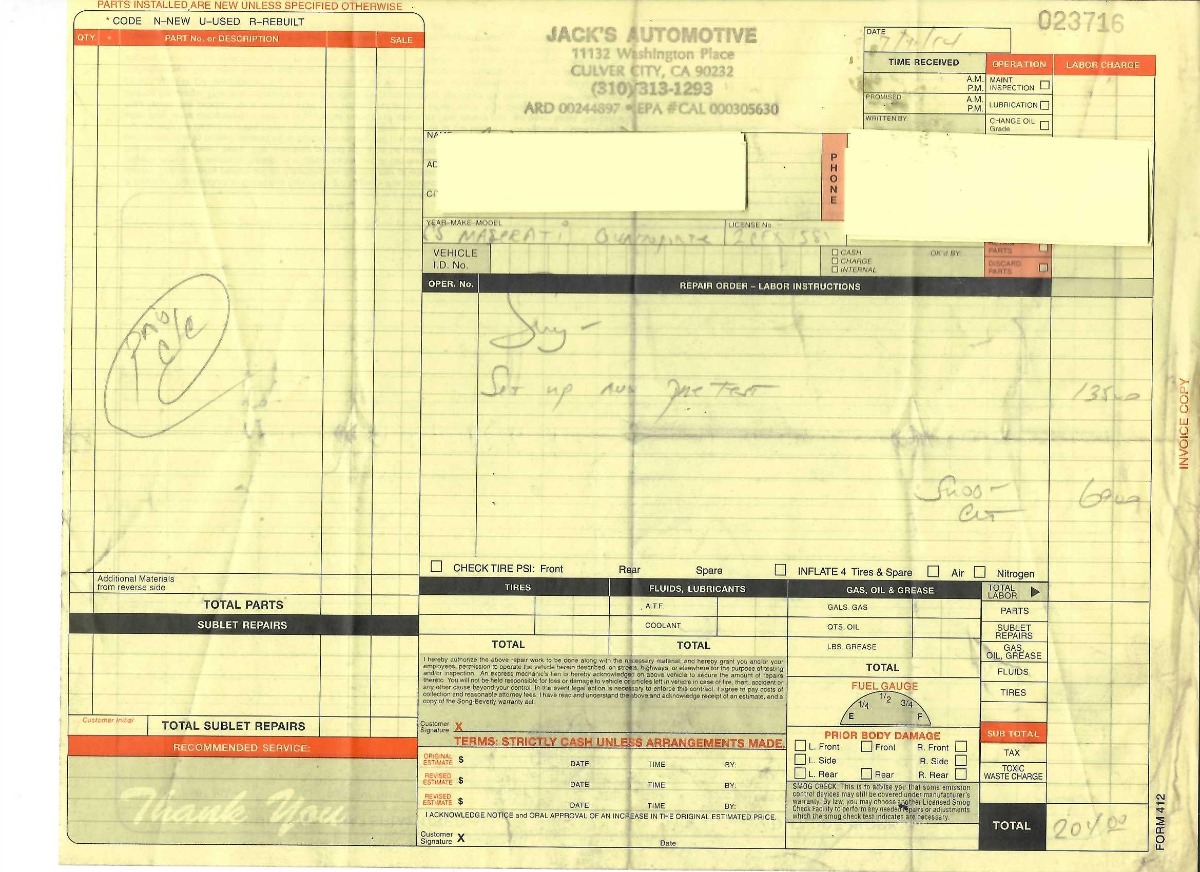 PARTS INSTALLED ARE NEW UNLESS SPECIFIED OTHERWISE
* CODE N-NEW U-USED R-REBUILT
QTY. PART No. or DESCRIPTION SALE
PAID
C/C
Additional Materials
from reverse side
TOTAL PARTS
SUBLET REPAIRS
Customer Initial
TOTAL SUBLET REPAIRS
RECOMMENDED SERVICE:
Thank You
JACK'S AUTOMOTIVE
11132 Washington Place
CULVER CITY, CA 90232
(310) 313-1293
ARD 00244897 • EPA #CAL 000305630
023716
DATE
TIME RECEIVED
A.M.
P.M.
PROMISED
A.M.
P.M.
WRITTEN BY
OPERATION
LABOR CHARGE
MAINT
INSPECTION
LUBRICATION
CHANGE OIL
Grade
PHONE
YEAR-MAKE-MODEL
MASERATI Quattroporte
LICENSE No.
VEHICLE
I.D. No.
CASH
CHARGE
INTERNAL
OK'd BY:
PARTS
DISCARD
PARTS
OPER. No.
REPAIR ORDER – LABOR INSTRUCTIONS
Set up run pre test 135.00
INVOICE COPY
CHECK TIRE PSI: Front Rear Spare
INFLATE 4 Tires & Spare Air Nitrogen
TIRES
FLUIDS, LUBRICANTS
GAS, OIL & GREASE
A.T.F.
COOLANT
GALS. GAS
QTS. OIL
LBS. GREASE
TOTAL
TOTAL
TOTAL
I hereby authorize the above repair work to be done along with the necessary material, and hereby grant you and/or your
employees, permission to operate the vehicle herein described, on streets, highways, or elsewhere for the purpose of testing
and/or inspection. An express mechanic's lien is hereby acknowledged on above vehicle to secure the amount of repairs
thereto. You will not be held responsible for loss or damage to vehicle or articles left in vehicle in case of fire, theft, accident or
any other cause beyond your control. In the event legal action is necessary to enforce this contract, I agree to pay costs of
collection and reasonable attorney fees. I have read and understand the above and acknowledge receipt of an estimate, and a
copy of the Song-Beverly warranty act.
Customer
Signature X
TERMS: STRICTLY CASH UNLESS ARRANGEMENTS MADE.
ORIGINAL
ESTIMATE $ DATE TIME BY:
REVISED
ESTIMATE $ DATE TIME BY:
REVISED
ESTIMATE $ DATE TIME BY:
I ACKNOWLEDGE NOTICE and ORAL APPROVAL OF AN INCREASE IN THE ORIGINAL ESTIMATED PRICE.
Customer
Signature X Date
FUEL GAUGE
1/4 1/2 3/4
E F
PRIOR BODY DAMAGE
L. Front Front R. Front
L. Side R. Side
L. Rear Rear R. Rear
SMOG CHECK: This is to advise you that some emission
control devices may still be covered under manufacturer's
warranty. By law, you may choose another Licensed Smog
Check Facility to perform any needed repairs or adjustments
which the smog check test indicates are necessary.
TOTAL
LABOR
PARTS
SUBLET
REPAIRS
GAS,
OIL, GREASE
FLUIDS
TIRES
SUB TOTAL
TAX
TOXIC
WASTE CHARGE
TOTAL 204.00
FORM 412